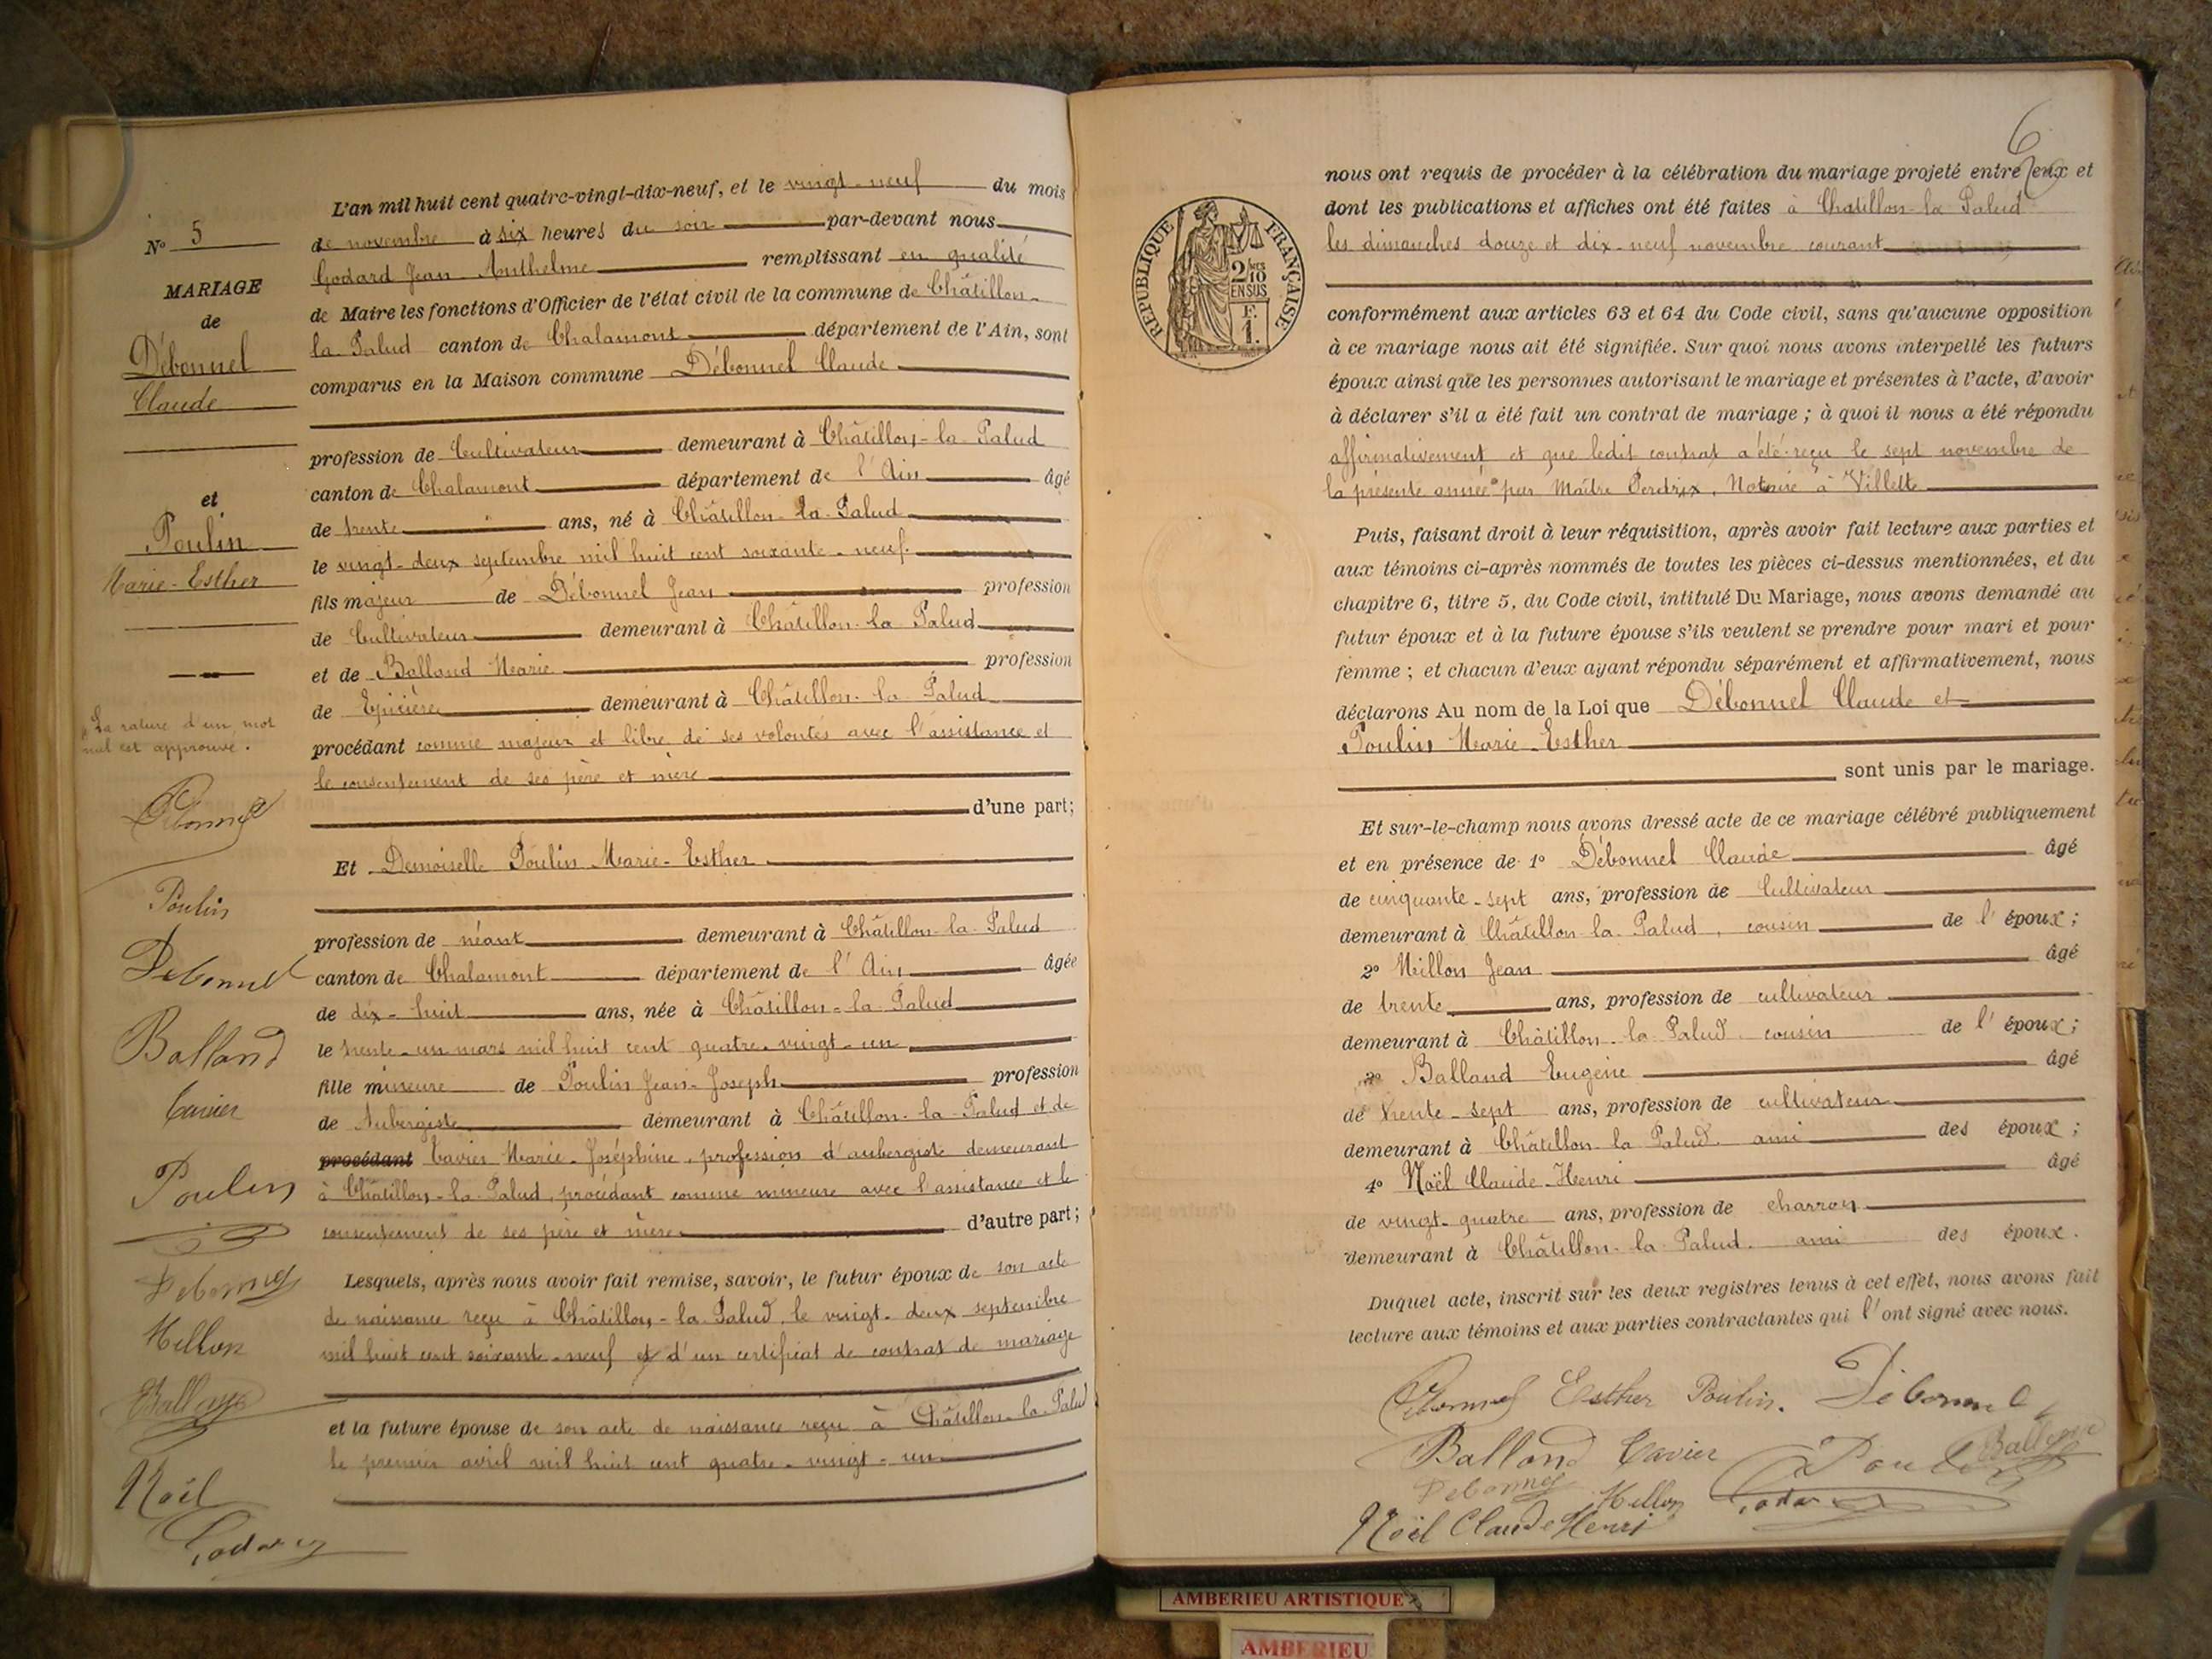 N° 5
MARIAGE
de
Débonnel
Claude
et
Poulin
Marie-Esther
La rature d'un mot
nul est approuvé.
Débonnel
Poulin
Debonnel
Balland
Cavier
Poulin
Debonnel
Millon
Balland
Noël
Godard
L'an mil huit cent quatre-vingt-dix-neuf, et le vingt-neuf du mois
de novembre à six heures du soir par-devant nous
Godard Jean Anthelme remplissant en qualité
de Maire les fonctions d'Officier de l'état civil de la commune de Châtillon-
la-Palud canton de Chalamont département de l'Ain, sont
comparus en la Maison commune Débonnel Claude
profession de Cultivateur demeurant à Châtillon-la-Palud
canton de Chalamont département de l'Ain âgé
de trente ans, né à Châtillon-la-Palud
le vingt-deux septembre mil huit cent soixante-neuf.
fils majeur de Débonnel Jean profession
de Cultivateur demeurant à Châtillon-la-Palud
et de Balland Marie profession
de Epicière demeurant à Châtillon-la-Palud
procédant comme majeur et libre de ses volontés avec l'assistance et
le consentement de ses père et mère
d'une part;
Et Demoiselle Poulin Marie-Esther
profession de néant demeurant à Châtillon-la-Palud
canton de Chalamont département de l'Ain âgée
de dix-huit ans, née à Châtillon-la-Palud
le trente-un mars mil huit cent quatre-vingt-un
fille mineure de Poulin Jean-Joseph profession
de Aubergiste demeurant à Châtillon-la-Palud et de
procédant Cavier Marie-Joséphine, profession d'aubergiste demeurant
à Châtillon-la-Palud, procédant comme mineure avec l'assistance et le
consentement de ses père et mère d'autre part;
Lesquels, après nous avoir fait remise, savoir, le futur époux de son acte
de naissance reçu à Châtillon-la-Palud, le vingt-deux septembre
mil huit cent soixante-neuf et d'un certificat de contrat de mariage
et la future épouse de son acte de naissance reçu à Châtillon-la-Palud
le premier avril mil huit cent quatre-vingt-un
6
RÉPUBLIQUE FRANÇAISE
2/10 EN SUS
F. 1.
nous ont requis de procéder à la célébration du mariage projeté entre eux et
dont les publications et affiches ont été faites à Chatillon-la-Palud
les dimanches douze et dix-neuf novembre courant
conformément aux articles 63 et 64 du Code civil, sans qu'aucune opposition
à ce mariage nous ait été signifiée. Sur quoi nous avons interpellé les futurs
époux ainsi que les personnes autorisant le mariage et présentes à l'acte, d'avoir
à déclarer s'il a été fait un contrat de mariage ; à quoi il nous a été répondu
affirmativement et que ledit contrat a été reçu le sept novembre de
la présente année par Maître Perdrix, Notaire à Villette
Puis, faisant droit à leur réquisition, après avoir fait lecture aux parties et
aux témoins ci-après nommés de toutes les pièces ci-dessus mentionnées, et du
chapitre 6, titre 5, du Code civil, intitulé Du Mariage, nous avons demandé au
futur époux et à la future épouse s'ils veulent se prendre pour mari et pour
femme ; et chacun d'eux ayant répondu séparément et affirmativement, nous
déclarons Au nom de la Loi que Débonnel Claude et
Poulin Marie-Esther
sont unis par le mariage.
Et sur-le-champ nous avons dressé acte de ce mariage célébré publiquement
et en présence de 1° Débonnel Claude âgé
de cinquante-sept ans, profession de Cultivateur
demeurant à Châtillon-la-Palud, cousin de l'époux;
2° Millon Jean âgé
de trente ans, profession de cultivateur
demeurant à Châtillon-la-Palud cousin de l'époux;
3° Balland Eugène âgé
de trente-sept ans, profession de cultivateur
demeurant à Châtillon-la-Palud. ami des époux;
4° Noël Claude-Henri âgé
de vingt-quatre ans, profession de charron
demeurant à Châtillon-la-Palud. ami des époux.
Duquel acte, inscrit sur les deux registres tenus à cet effet, nous avons fait
lecture aux témoins et aux parties contractantes qui l'ont signé avec nous.
Débonnel Esther Poulin. Débonnel
Balland Cavier Poulin Balland
Debonnel Millon Godard
Noël Claude Henri
AMBERIEU ARTISTIQUE
AMBERIEU